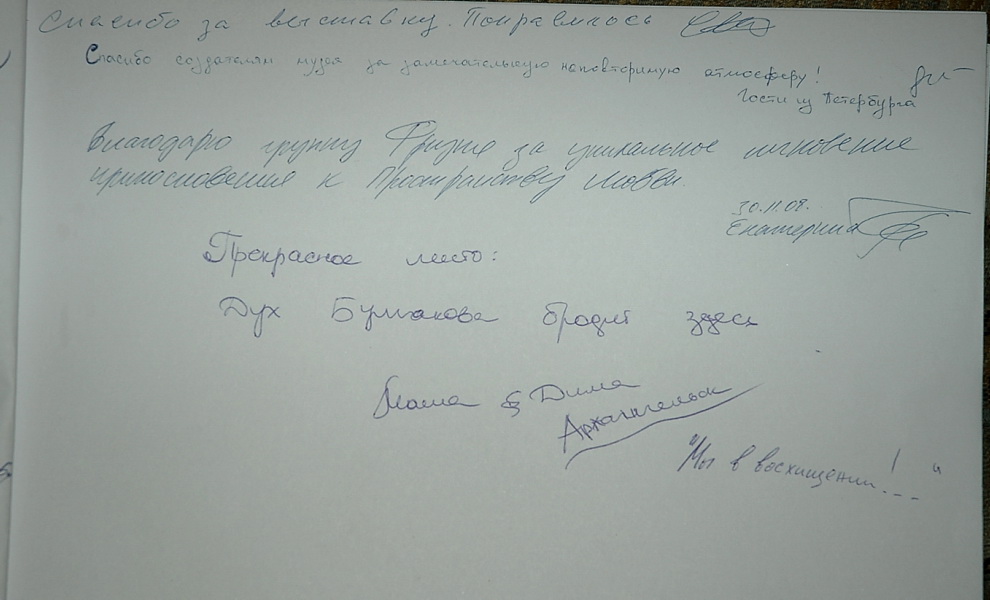 Спасибо за выставку. Понравилось
Спасибо создателям музея за замечательную неповторимую атмосферу!
Гости из Петербурга
Благодарю группу за уникальное мгновение
прикосновения к Пространству Любви.
30.11.09.
Екатерина
Прекрасное место:
Дух Булгакова бродит здесь
Маша & Дима
Архангельск
"Мы в восхищении!..."